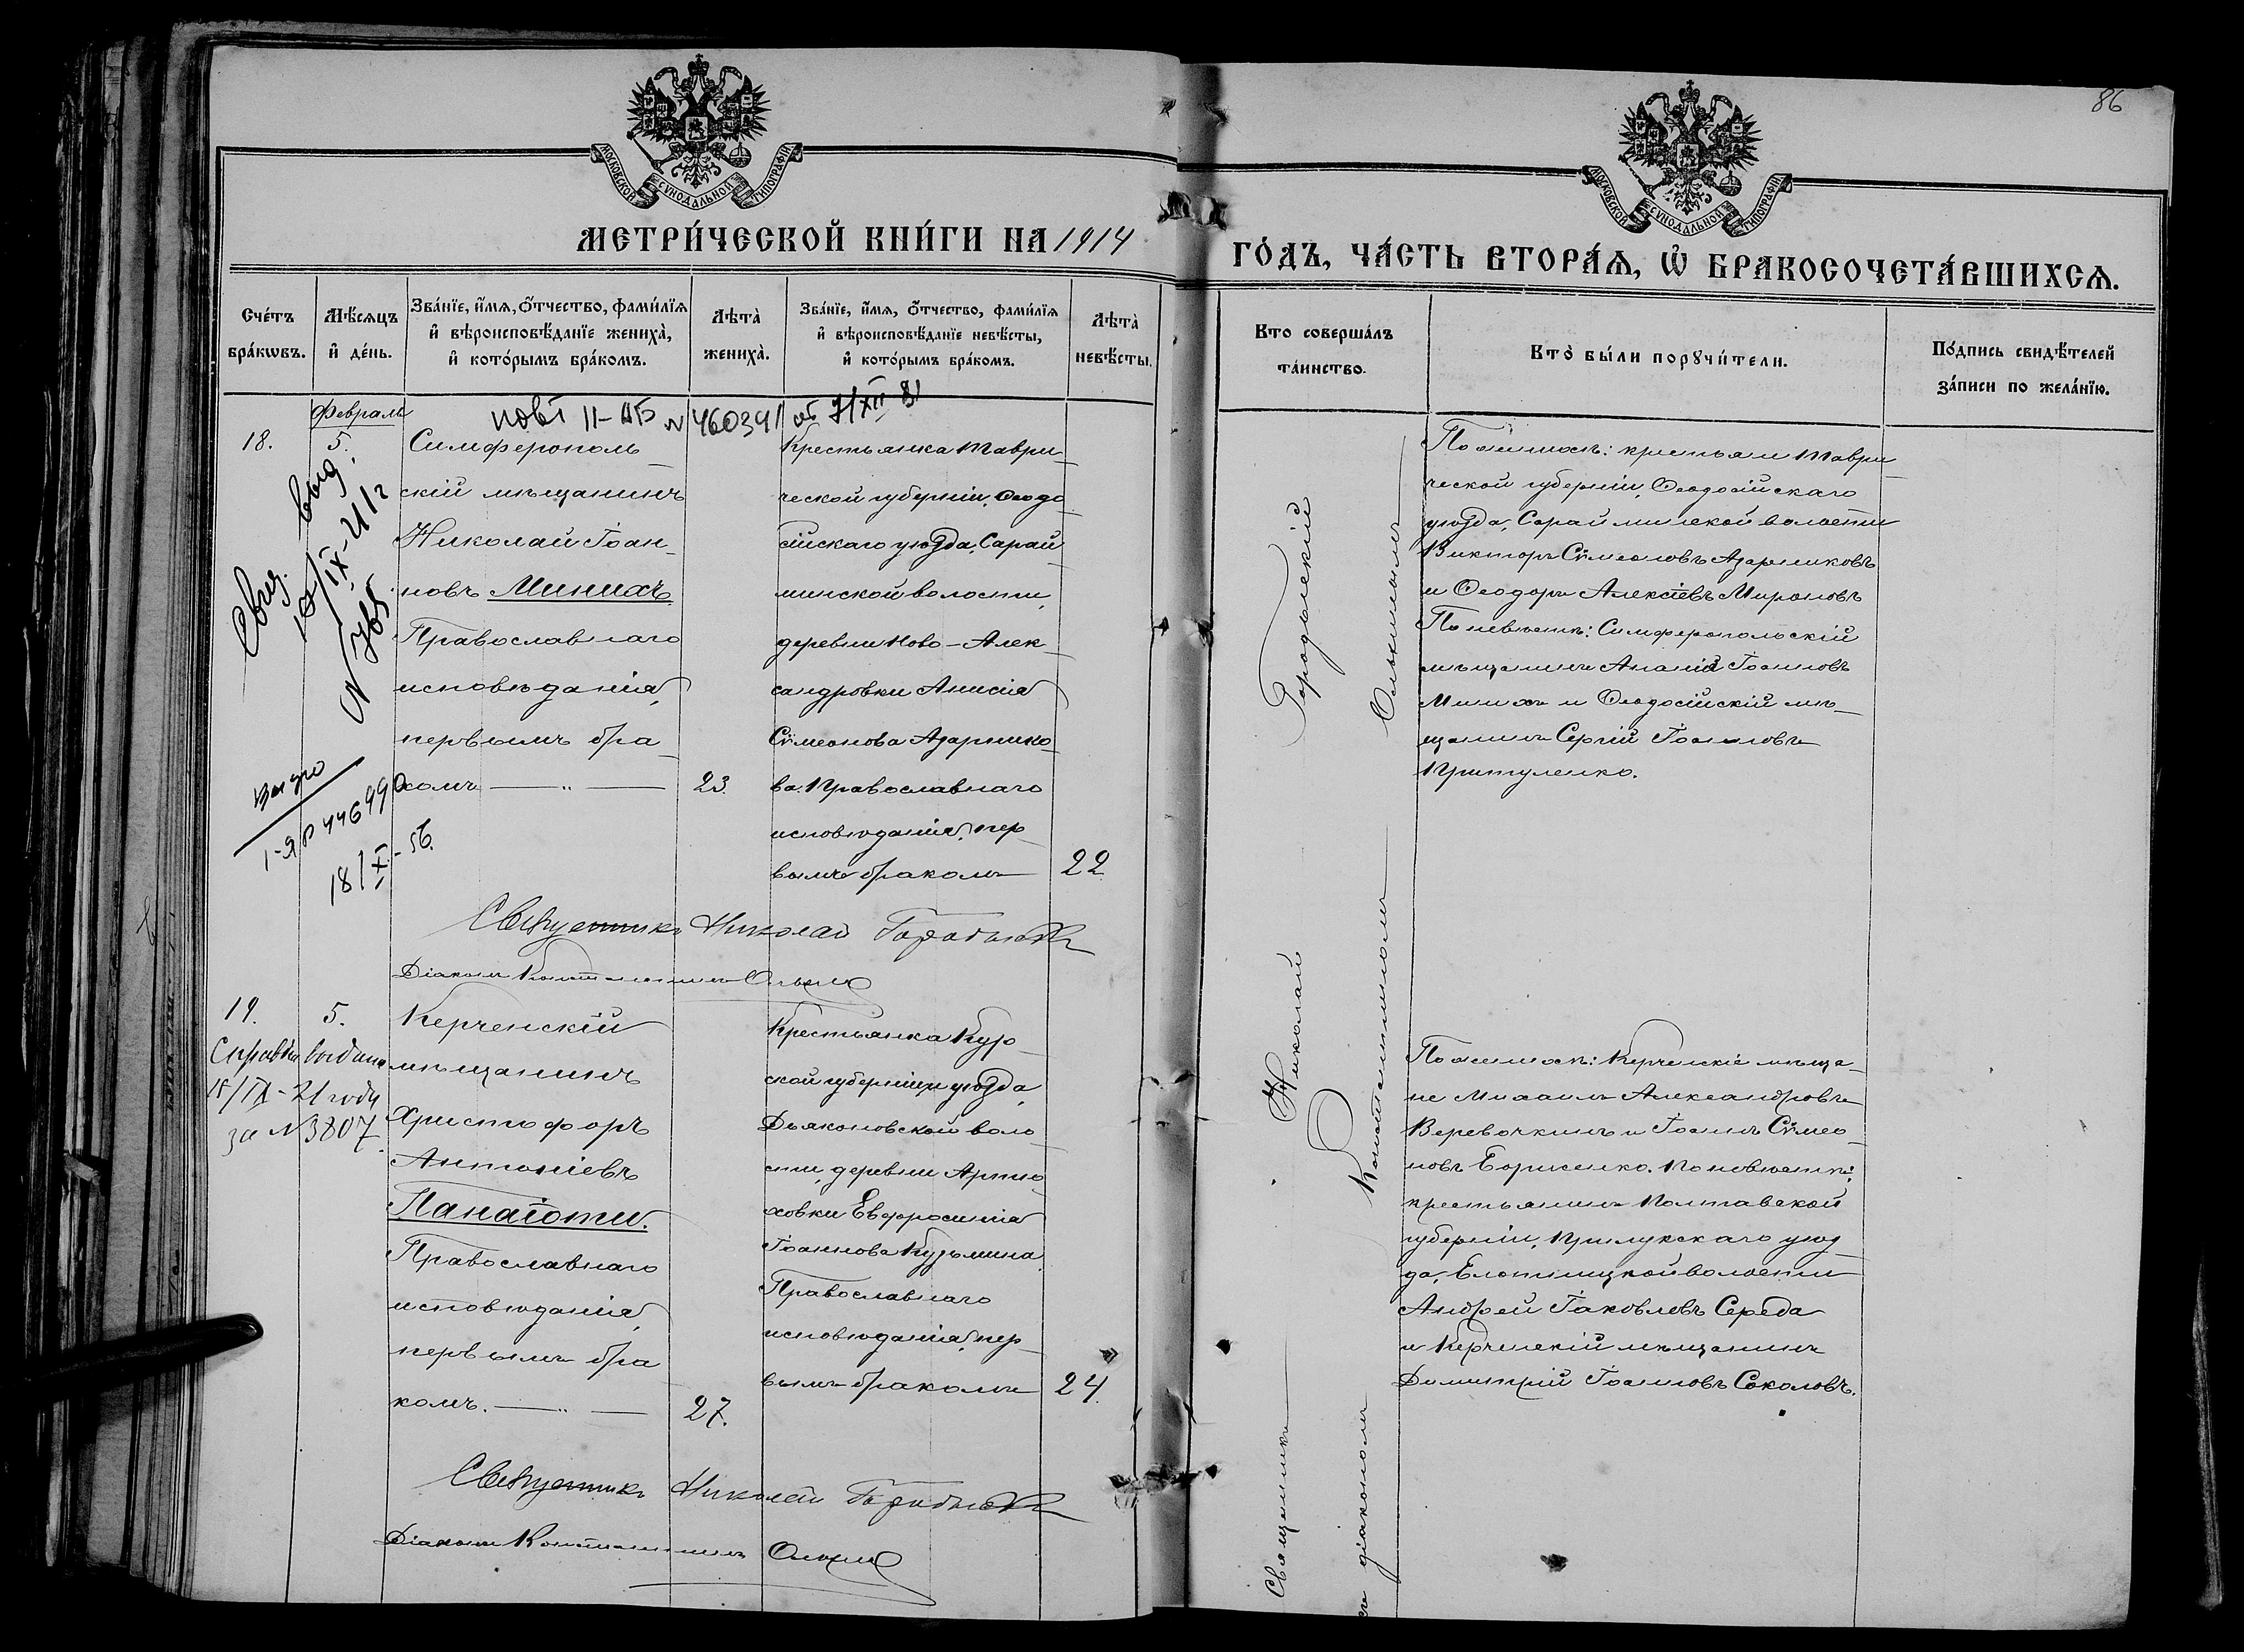 86
МОСКОВСКОЙ СѴНОДАЛЬНОЙ ТИПОГРАФІИ
МОСКОВСКОЙ СѴНОДАЛЬНОЙ ТИПОГРАФІИ
МЕТРИ́ЧЕСКОЙ КНИ́ГИ НА 1914
ГО́ДЪ, ЧА́СТЬ ВТОРА́Ѧ, Ѽ БРАКОСОЧЕТА́ВШИХСѦ.
Сче́тъ
бра́кѡвъ.
Мѣ́сѧцъ
и҆ де́нь.
Зва́нїе, и҆́мѧ, ѻ҆́тчество, фами́лїѧ
и҆ вѣроисповѣ́данїе жениха̀,
и҆ кото́рымъ бра́комъ.
Лѣта̀
жениха̀.
Зва́нїе, и҆́мѧ, ѻ҆́тчество, фами́лїѧ
и҆ вѣроисповѣ́данїе невѣ́сты,
и҆ кото́рымъ бра́комъ.
Лѣта̀
невѣ́сты.
Кто соверша́лъ
та́инство.
Кто̀ бы́ли порꙋчи́тели.
По́дпись свидѣ́телей
за́писи по жела́нїю.
Февраль
18.
5.
повт II-АП № 460341 от 7/XII 81
выд.
18/IX-21 г
N 765
N 446990
18/X-56.
Симферополь-
скій мѣщанинъ
Николай Іоан-
новъ Минихъ
Православнаго
исповѣданія,
первымъ бра-
комъ — „ —
23.
Крестьянка Таври-
ческой губерніи, Ѳеодо
сійскаго уѣзда, Сарай
минской волости,
деревни Ново-Алек-
сандровки Анисія
Сѵмеонова Азарнико-
ва. Православнаго
исповѣданія, пер-
вымъ бракомъ
22
Священникъ Николай Городыскій
Діаконъ Константинъ
По женихѣ: крестьяне Таври-
ческой губерніи, Ѳеодосійскаго
уѣзда, Сарайминской волости
Викторъ Сѵмеоновъ Азарниковъ
и Ѳеодоръ Алексіевъ Мироновъ
По невѣстѣ: Симферопольскій
мѣщанинъ Ананій Іоанновъ
Минихъ и Ѳеодосійскій мѣ-
щанинъ Сергій Іоанновъ
Притуленко.
19.
5.
Справка выдана
18/IX-21 году
за N 3807.
Керченскій
мѣщанинъ
Христофоръ
Антоніевъ
Панаіоти.
Православнаго
исповѣданія,
первымъ бра
комъ. — „ —
27.
Крестьянка Кур-
ской губерніи и уѣзда,
Дьяконовской воло-
сти, деревни Артю-
ховки Евфросинія
Іоаннова Кузьмина
Православнаго
исповѣданія, пер-
вымъ бракомъ
24.
Священникъ Николай Городыскій
Діаконъ Константинъ
По женихѣ: Керченскіе мѣща-
не Михаилъ Александровъ
Веревочкинъ и Іоаннъ Сѵмео-
новъ Борисенко. По невѣстѣ:
крестьянинъ Полтавской
губерніи, Прилукскаго уѣз-
да, волости
Андрей Іаковлевъ Середа
и Керченскій мѣщанинъ
Димитрій Іоанновъ Соколовъ.
Священникъ Николай Городыскій
діакономъ Константиномъ